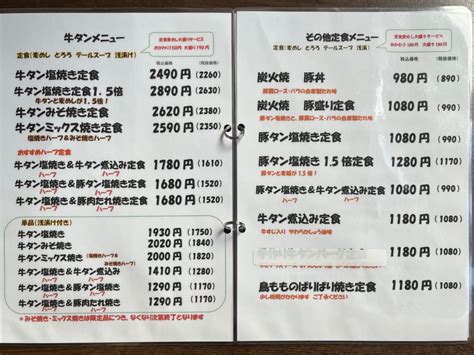 牛タンメニュー
定食(麦めし とろろ テールスープ 浅漬け)
税込価格 (税抜価格)
牛タン塩焼き定食 2490円 (2260)
牛タン塩焼き定食1.5倍 2890円 (2630)
牛タンと麦めしが1.5倍!
牛タンみそ焼き定食 2620円 (2380)
牛タンミックス焼き定食 2590円 (2350)
塩焼きハーフ&みそ焼きハーフ
おすすめハーフ定食
牛タン塩焼き&牛タン煮込み定食 1780円 (1610)
ハーフ ハーフ
牛タン塩焼き&豚タン塩焼き定食 1680円 (1520)
ハーフ ハーフ
牛タン塩焼き&豚肉たれ焼き定食 1680円 (1520)
ハーフ ハーフ
単品(浅漬け付き)
牛タン塩焼き 1930円 (1750)
牛タンみそ焼き 2060円 (1870)
牛タンミックス焼き 塩焼きハーフ& みそ焼きハーフ 2000円 (1820)
牛タン塩焼き&牛タン煮込み 1410円 (1280)
ハーフ ハーフ
牛タン塩焼き&豚タン塩焼き 1290円 (1170)
ハーフ ハーフ
牛タン塩焼き&豚肉たれ焼き 1290円 (1170)
ハーフ ハーフ
*みそ焼き・ミックス焼きは限定品につき、なくなり次第終了となります
その他定食メニュー
定食(麦めし とろろ テールスープ 浅漬)
税込価格 (税抜価格)
炭火焼 豚丼 980円 (890)
豚肩ロース・バラの自家製たれ味
炭火焼 豚盛り定食 1080円 (990)
豚タン塩焼き定食 1080円 (990)
豚タン塩焼き1.5倍定食 1280円 (1170)
豚タン塩焼き&牛タン煮込み定食 1080円 (990)
ハーフ ハーフ
牛タン煮込み定食 1180円 (1080)
牛すじ入り やわらかしょうゆ味
1180円 (1080)
鳥もものぱりぱり焼き定食 1180円 (1080)
少し時間がかかります ご了承ください